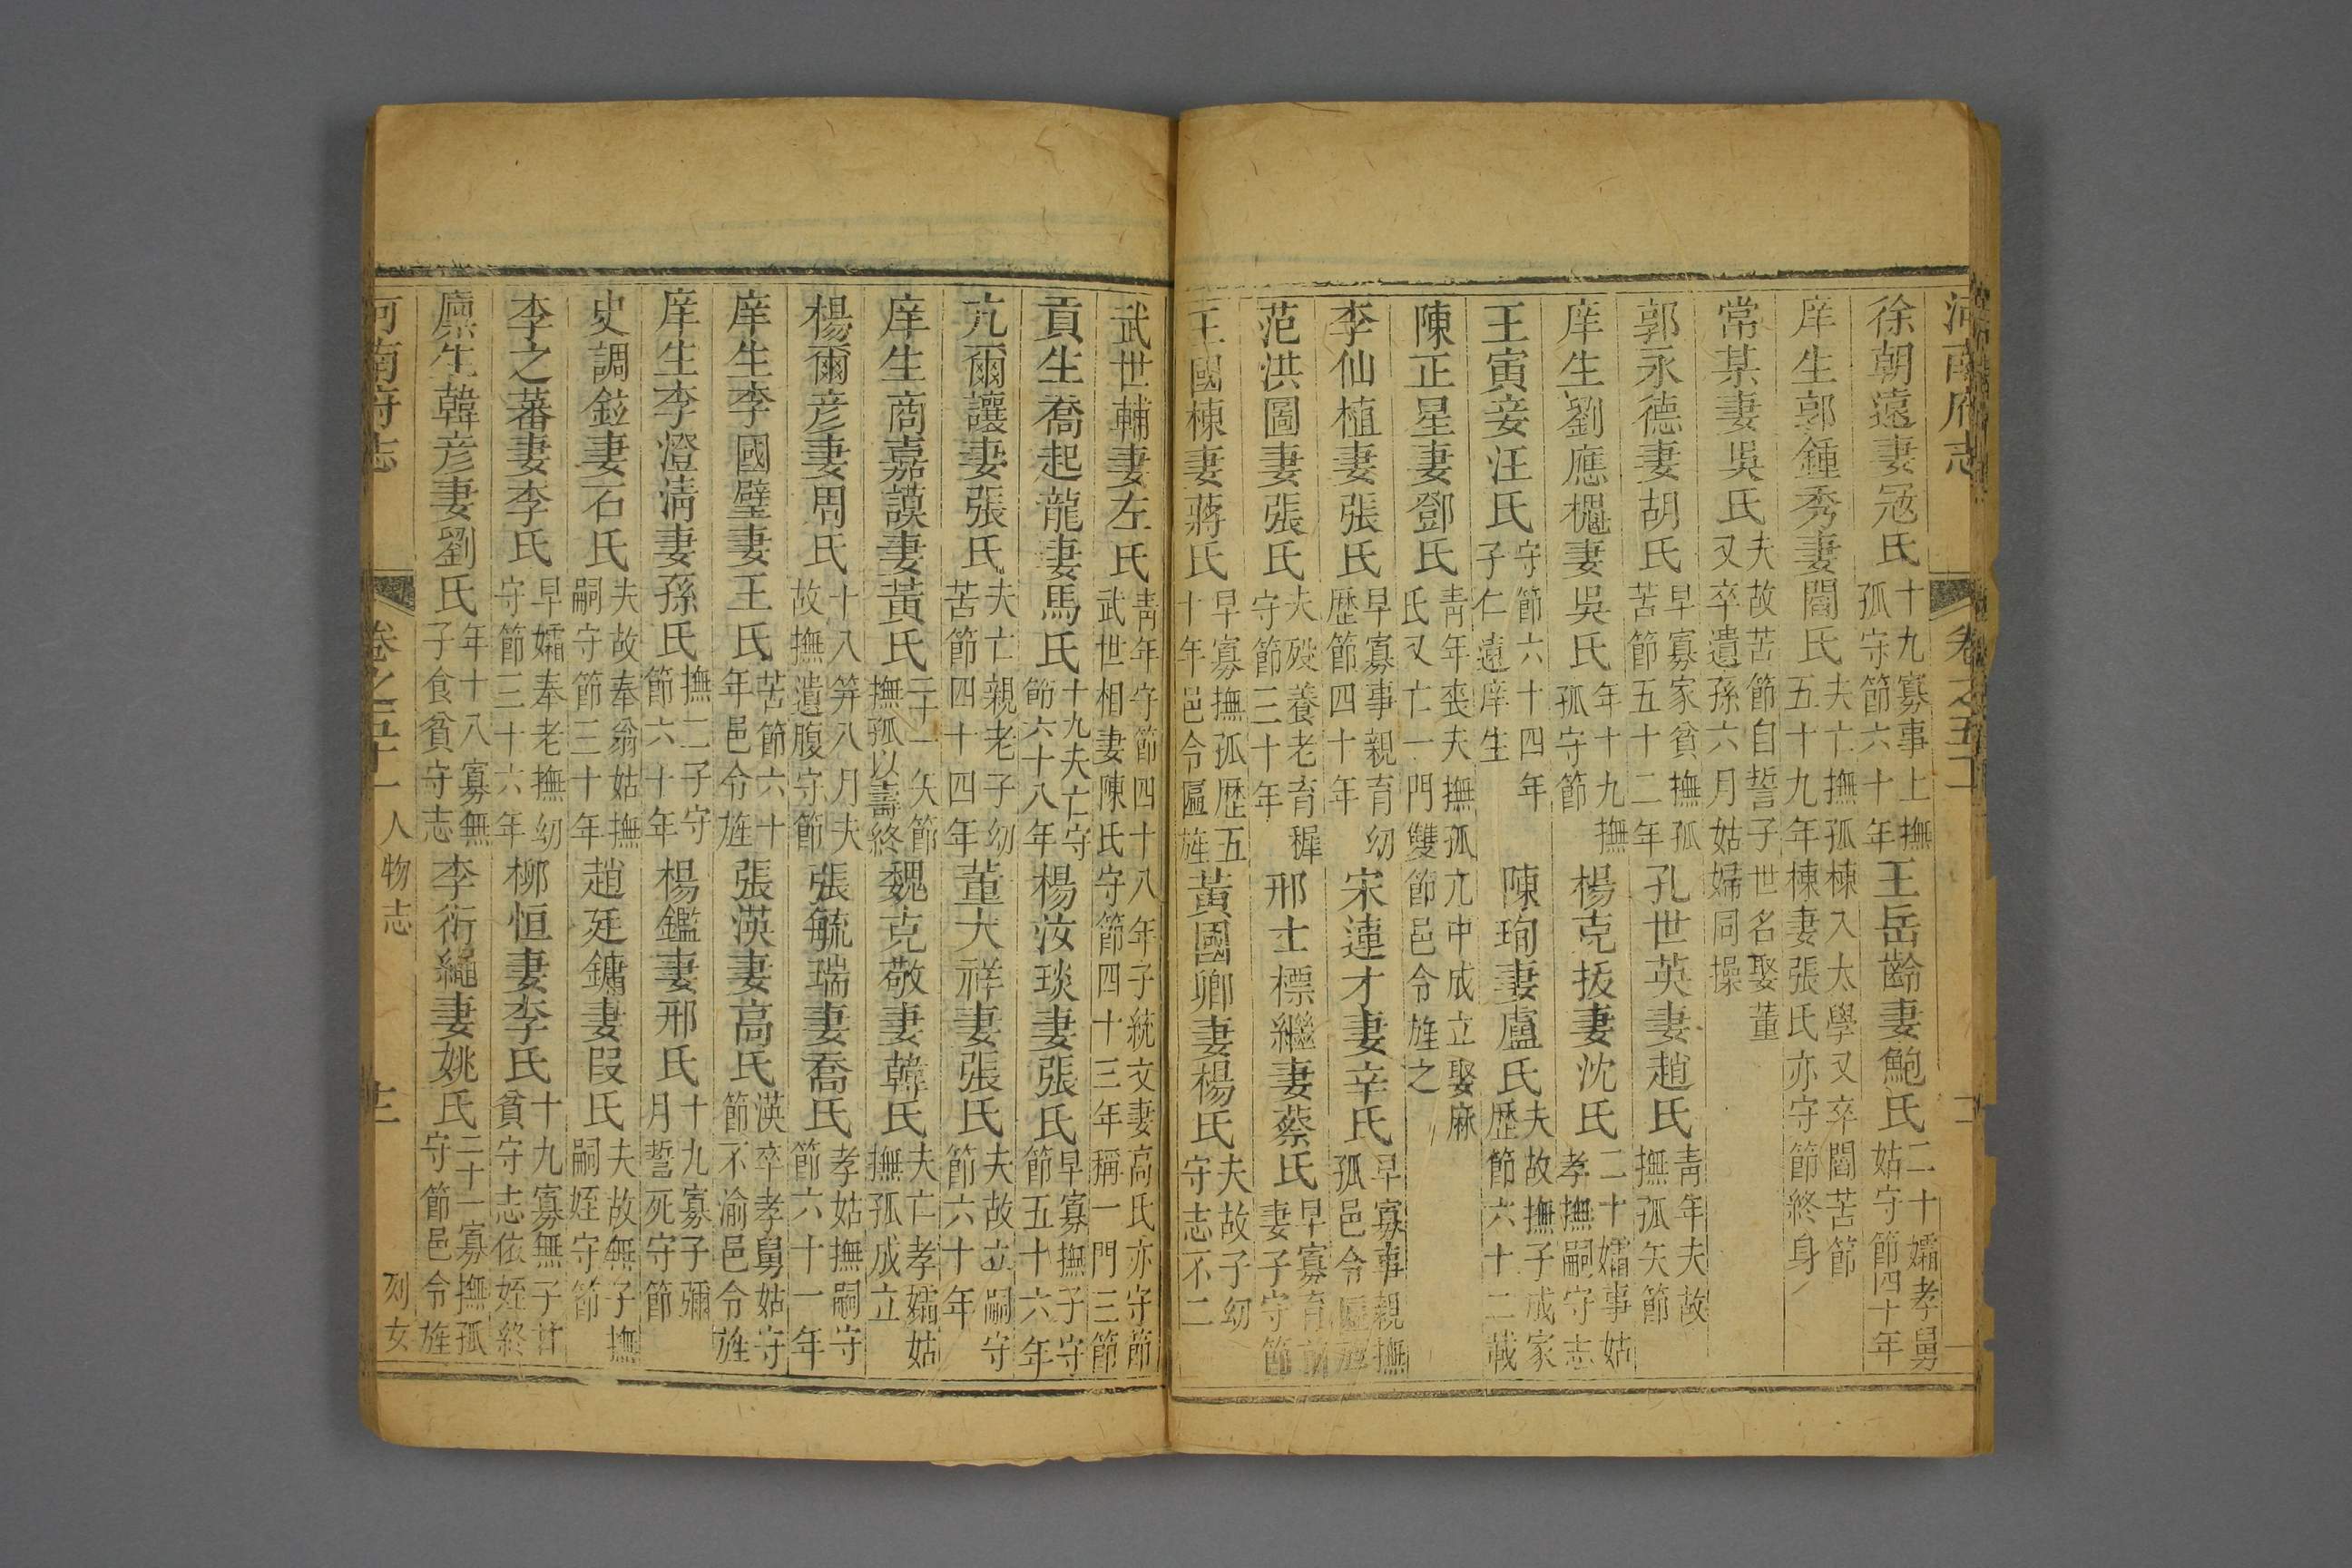 河南府志
卷之五十二
徐朝遠妻冦氏十九寡事上撫孤守節六十年王岳齡妻鮑氏二十孀孝舅姑守節四十年
庠生郭鍾秀妻閻氏夫亡撫孤棟入太學又卒閻苦節五十九年棟妻張氏亦守節終身
常某妻吳氏夫故苦節自誓子世名娶董又卒遺孫六月姑婦同操
郭永德妻胡氏早寡家貧撫孤苦節五十二年孔世英妻趙氏青年夫故撫孤矢節
庠生劉應櫆妻吳氏年十九撫孤守節楊克拔妻沈氏二十孀事姑孝撫嗣守志
王寅妾汪氏守節六十四年子仁遠庠生陳珣妻盧氏夫故撫子成家歷節六十二載
陳正星妻鄧氏青年喪夫撫孤亢中成立娶麻氏又亡一門雙節邑令旌之
李仙植妻張氏早寡事親育幼歷節四十年宋連才妻辛氏早寡事親撫孤邑令匾旌
范洪圖妻張氏夫殁養老育穉守節三十年邢士標繼妻蔡氏早寡育前妻子守節
王國棟妻蔣氏早寡撫孤歷五十年邑令匾旌黃國卿妻楊氏夫故子幼守志不二
武世輔妻左氏青年守節四十八年子統文妻高氏亦守節武世相妻陳氏守節四十三年稱一門三節
貢生喬起龍妻馬氏十九夫亡守節六十八年楊汝琰妻張氏早寡撫子守節五十六年
亢爾讓妻張氏夫亡親老子幼苦節四十四年董大祥妻張氏夫故立嗣守節六十年
庠生商嘉謨妻黃氏二十一矢節撫孤以壽終魏克敬妻韓氏夫亡孝孀姑撫孤成立
楊爾彥妻周氏十八笄八月夫故撫遺腹守節張毓瑞妻喬氏孝姑撫嗣守節六十一年
庠生李國璧妻王氏苦節六十年邑令旌張漢妻高氏漢卒孝舅姑守節不渝邑令旌
庠生李澄清妻孫氏撫二子守節六十年楊鑑妻邢氏十九寡子彌月誓死守節
史調鉉妻石氏夫故奉翁姑撫嗣守節三十年趙廷鏞妻段氏夫故無子撫嗣姪守節
李之蕃妻李氏早孀奉老撫幼守節三十六年柳恒妻李氏十九寡無子甘貧守志依姪終
廩生韓彥妻劉氏年十八寡無子食貧守志李衍繩妻姚氏二十一寡撫孤守節邑令旌
河南府志
卷之五十一
人物志
列女